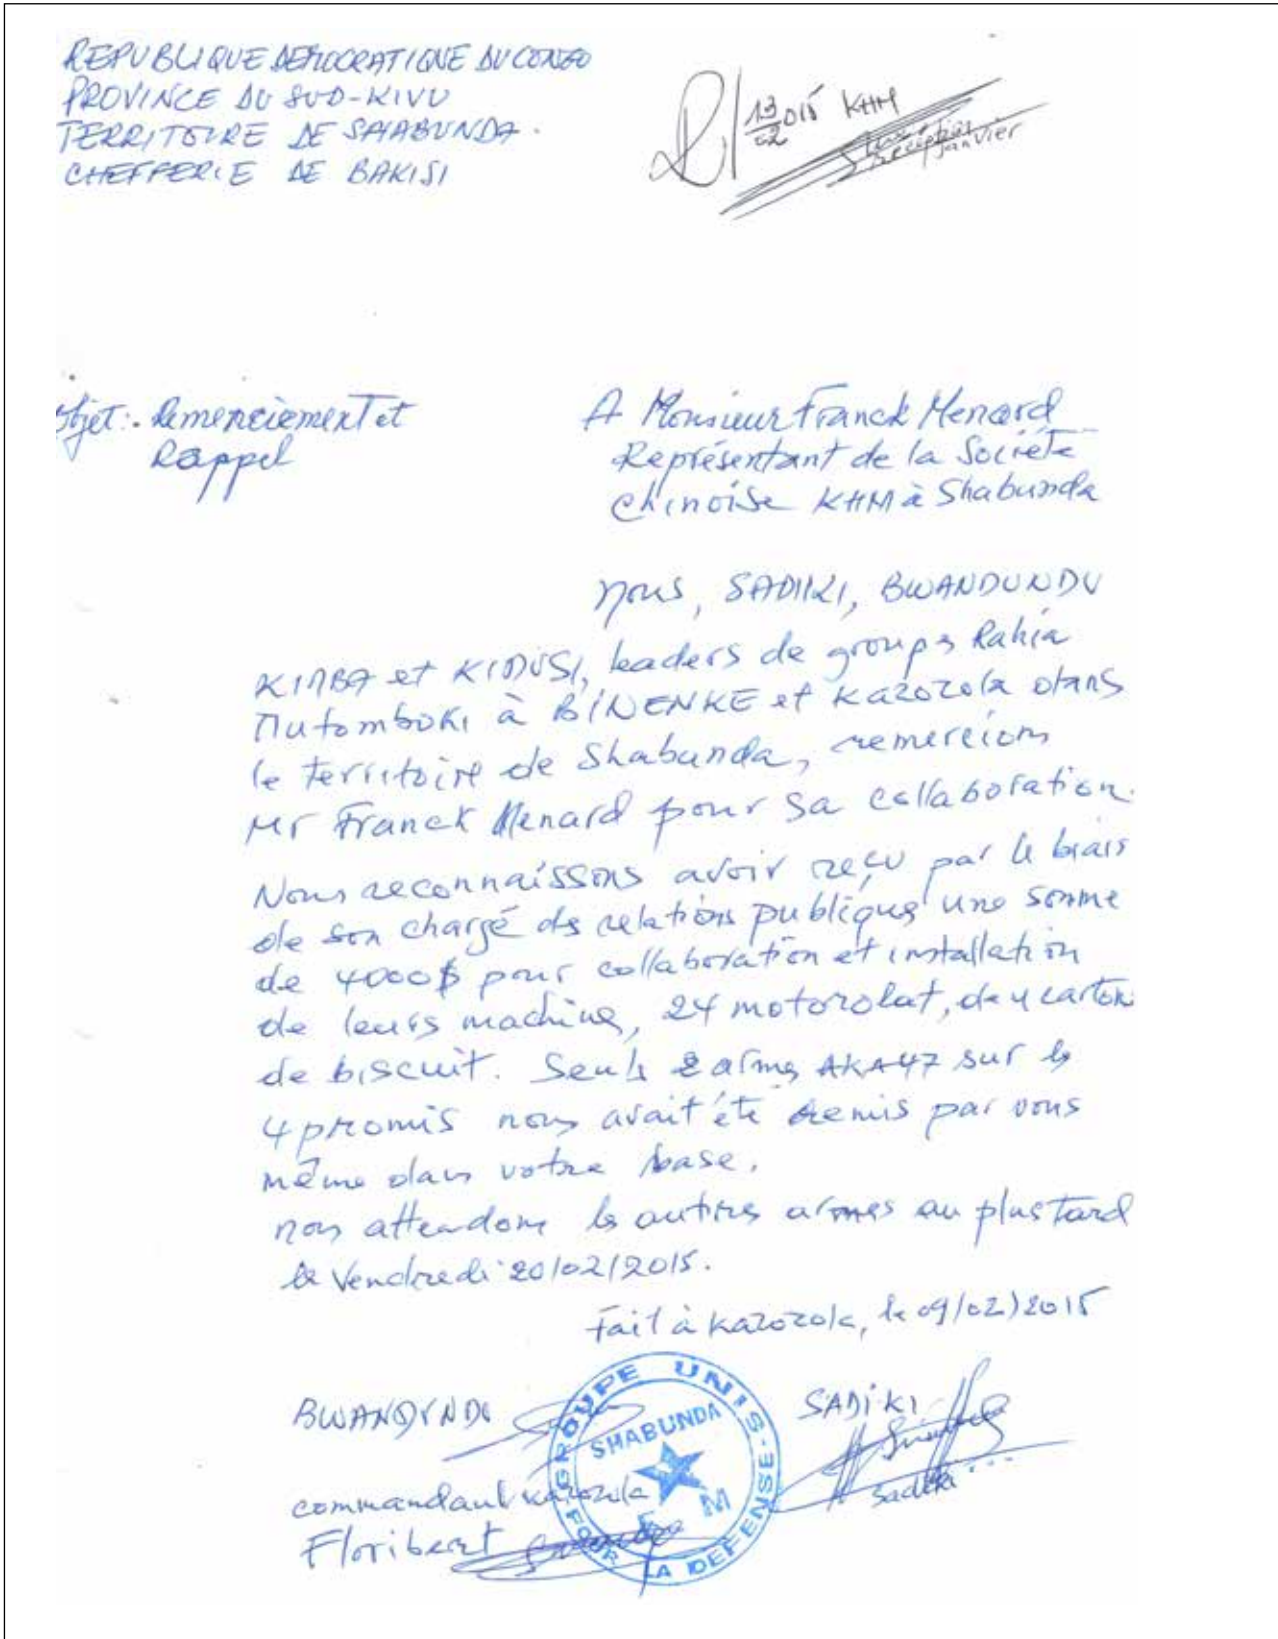 REPUBLIQUE DEMOCRATIQUE DU CONGO
PROVINCE DU SUD-KIVU
TERRITOIRE DE SHABUNDA.
CHEFFERIE DE BAKISI
13/02 015 KHM
réception
janvier
Objet: Remerciement et
Rappel
A Monsieur Franck Menard
Représentant de la Société
chinoise KHM à Shabunda
Nous, SADIKI, BWANDUNDU
KIMBA et KIDUSI, leaders de groups Rahia
Mutomboki à BINENKE et Kazozola dans
le territoire de Shabunda, remercions
Mr Franck Menard pour sa collaboration.
Nous reconnaissons avoir reçu par le biais
de son chargé des relations publiques une somme
de 4000$ pour collaboration et installation
de leurs machines, 24 motorolat, de 4 carton
de biscuit. Seuls 2 armes AKA47 sur les
4 promis nous avait été remis par vous
même dans votre base.
nous attendons les autres armes au plus tard
le Vendredi 20/02/2015.
Fait à Kazozola, le 09/02/2015
BWANDUNDU
SADIKI
commandant Kazozola
Sadiki
Floribert
GROUPE UNIS-
POUR LA DEFENSE
SHABUNDA
E M